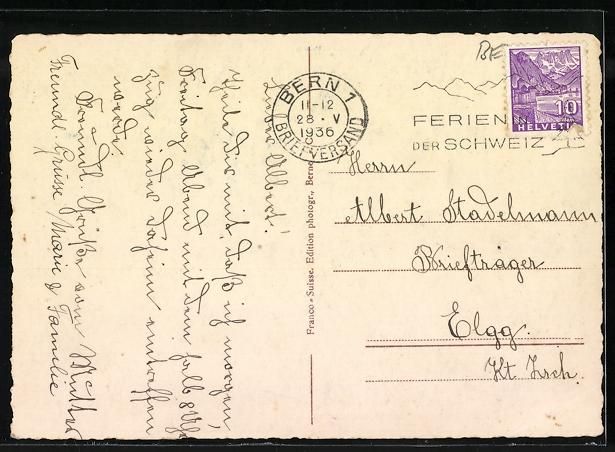 Lieber Albert!
Theile Dir mit, daß ich morgen,
Freitag Abend mit dem halb 8 Uhr
Zug wieder daheim eintreffen
werde.
Freundl. Grüße von Mutter
Freundl. Grüsse Marie & Familie
Franco-Suisse. Edition photogr., Berne
BERN 1
11-12
28. V
1936
BRIEFVERSAND
FERIEN IN
DER SCHWEIZ
BE
10
HELVETIA
Herrn
Albert Stadelmann
Briefträger
Elgg.
Kt Zrch.